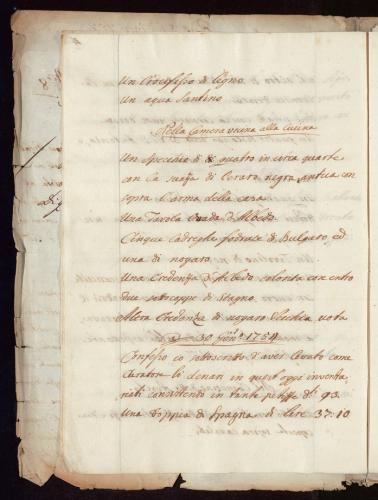 Un Crocefisso di legno
Un aqua Santino
Nella Camera vicina alla Cucina
Un Specchio di quatro in circa quarte
con la suasa di Corato negra antica con
sopra l'arma della casa
Una Tavola di Albedo
Cinque Cadreghe fodrate di Bulgaro, ed
una di nogaro
Una Credenza d'Albedo colorita con entro
due sotocoppe di Stagno
Altra Credenza di nogaro Vechia vota
30 1754
Confesso io sottoscritto d'aver levato come
Curatore li denari in quest' inventa,
riati consistenti in tante pezze d. 93.
Una doppia di Spagna di Lire 37:10